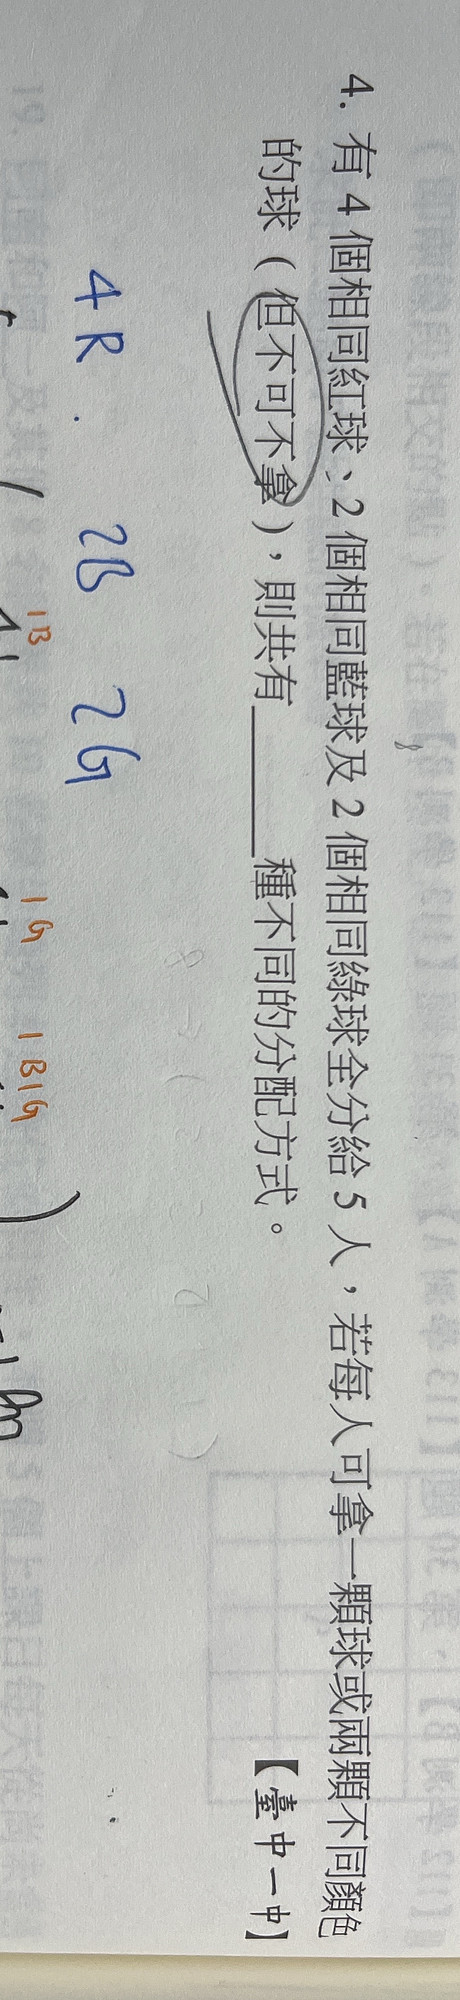 4. 有 4 個相同紅球、2 個相同藍球及 2 個相同綠球全分給 5 人，若每人可拿一顆球或兩顆不同顏色
的球（但不可不拿），則共有______種不同的分配方式。 【臺中一中】
4R. 2B 2G
1B 1G 1B1G